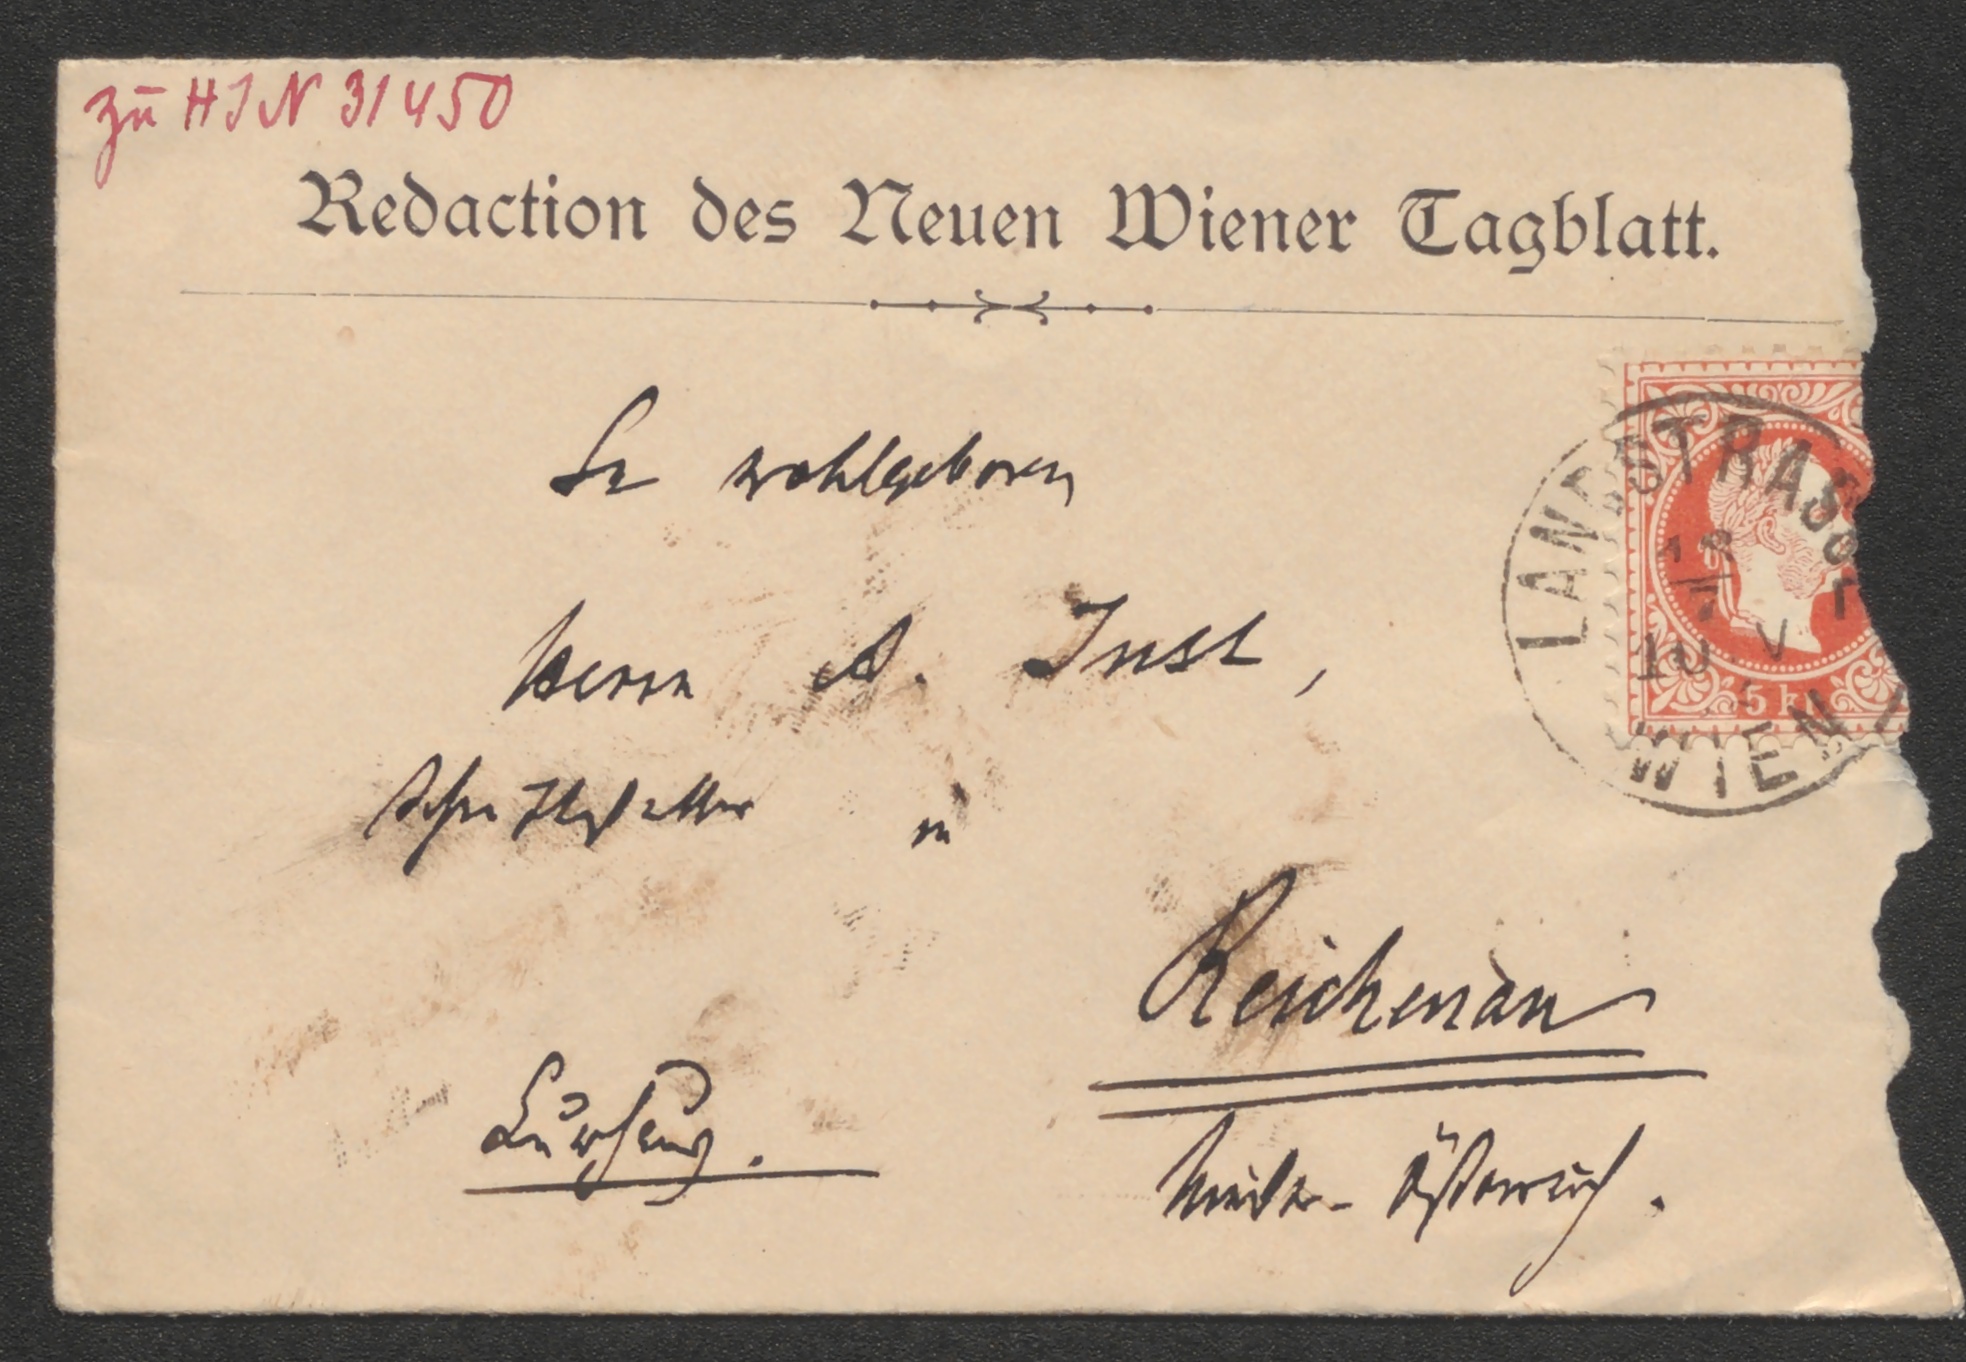 zu HIN 31450
Redaction des Neuen Wiener Tagblatt.
Sr wohlgeboren
Herrn A. Just,
Schriftsteller in
Reichenau
Nieder-Österreich.
LANDSTRASS
18
7
10 V
WIEN
5 kr